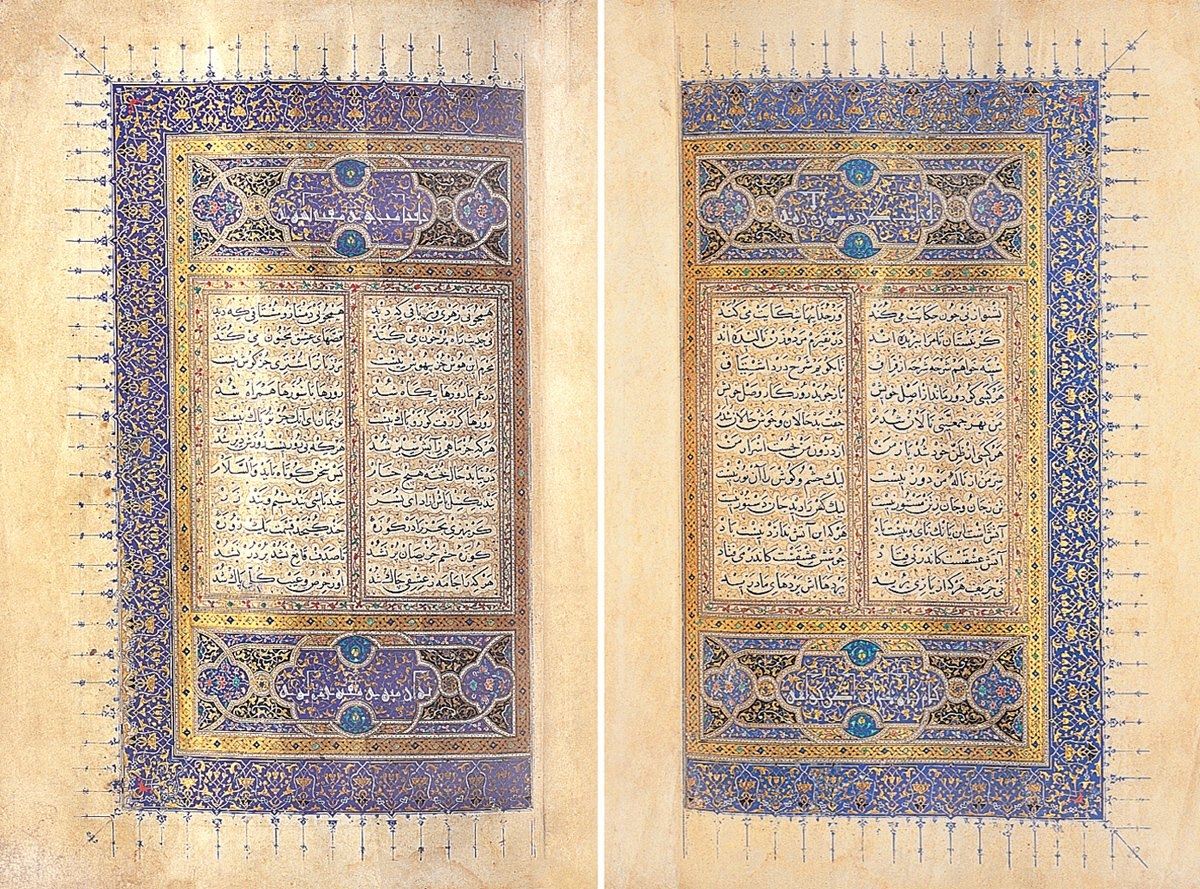 بشنو از نی چون حکایت می کند وز جداییها شکایت می کند
کز نیستان تا مرا ببریده اند در نفیرم مرد و زن نالیده اند
سینه خواهم شرحه شرحه از فراق تا بگویم شرح درد اشتیاق
هر کسی کو دور ماند از اصل خویش باز جوید روزگار وصل خویش
من بهر جمعیتی نالان شدم جفت بدحالان و خوش حالان شدم
هر کسی از ظن خود شد یار من از درون من نجست اسرار من
سر من از ناله من دور نیست لیک چشم و گوش را آن نور نیست
تن ز جان و جان ز تن مستور نیست لیک کس را دید جان دستور نیست
آتش است این بانگ نای و نیست باد هر که این آتش ندارد نیست باد
آتش عشقست کاندر نی فتاد جوشش عشقست کاندر می فتاد
نی حریف هر که از یاری برید پردهااش پردهای ما درید
همچو نی زهری و تریاقی که دید همچو نی دمساز و مشتاقی که دید
نی حدیث راه پر خون می کند قصهای عشق مجنون می کند
محرم این هوش جز بیهوش نیست مر زبان را مشتری جز گوش نیست
در غم ما روزها بیگاه شد روزها با سوزها همراه شد
روزها گر رفت گو رو باک نیست تو بمان ای آنک چون تو پاک نیست
هر که جز ماهی ز آبش سیر شد هر که بی روزیست روزش دیر شد
درنیابد حال پخته هیچ خام پس سخن کوتاه باید والسلام
بند بگسل باش آزاد ای پسر چند باشی بند سیم و بند زر
گر بریزی بحر را در کوزه چند گنجد قسمت یک روزه
کوزه چشم حریصان پر نشد تا صدف قانع نشد پر در نشد
هر که را جامه ز عشقی چاک شد او ز حرص و عیب کلی پاک شد